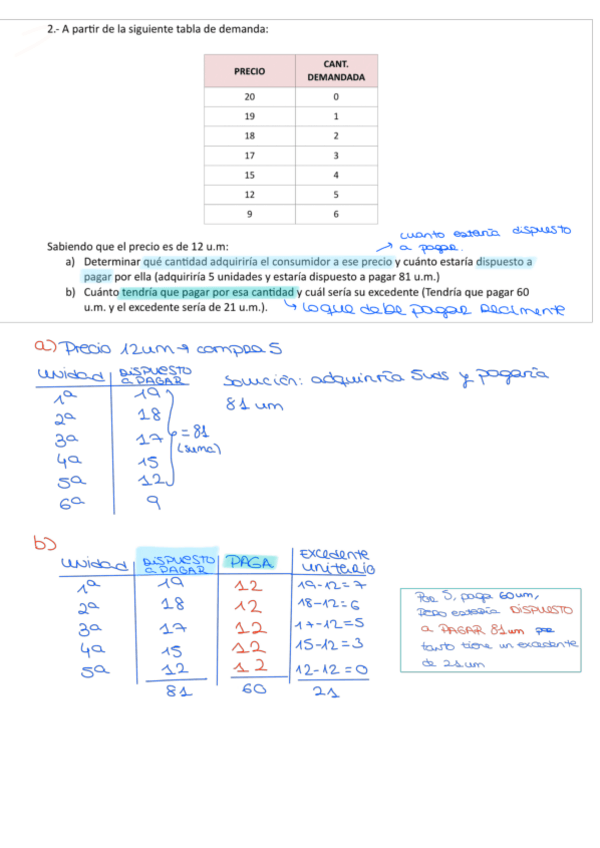 2.- A partir de la siguiente tabla de demanda:
PRECIO CANT. DEMANDADA
20 0
19 1
18 2
17 3
15 4
12 5
9 6
cuanto estaría dispuesto
→ a pagar.
Sabiendo que el precio es de 12 u.m:
a) Determinar qué cantidad adquiriría el consumidor a ese precio y cuánto estaría dispuesto a
pagar por ella (adquiriría 5 unidades y estaría dispuesto a pagar 81 u.m.)
b) Cuánto tendría que pagar por esa cantidad y cuál sería su excedente (Tendría que pagar 60
u.m. y el excedente sería de 21 u.m.).
↳ lo que debe pagar realmente
a) Precio 12um → compra 5
unidad DISPUESTO a PAGAR
1ª 19
2ª 18
3ª 17
4ª 15
5ª 12
6ª 9
= 81
(suma)
Solución: adquiriría 5uds y pagaría
81 um
b)
unidad DISPUESTO a PAGAR PAGA Excedente uniterio
1ª 19 12 19-12=7
2ª 18 12 18-12=6
3ª 17 12 17-12=5
4ª 15 12 15-12=3
5ª 12 12 12-12=0
81 60 21
Por 5, paga 60um,
pero estaría DISPUESTO
a PAGAR 81um por
tanto tiene un excedente
de 21um